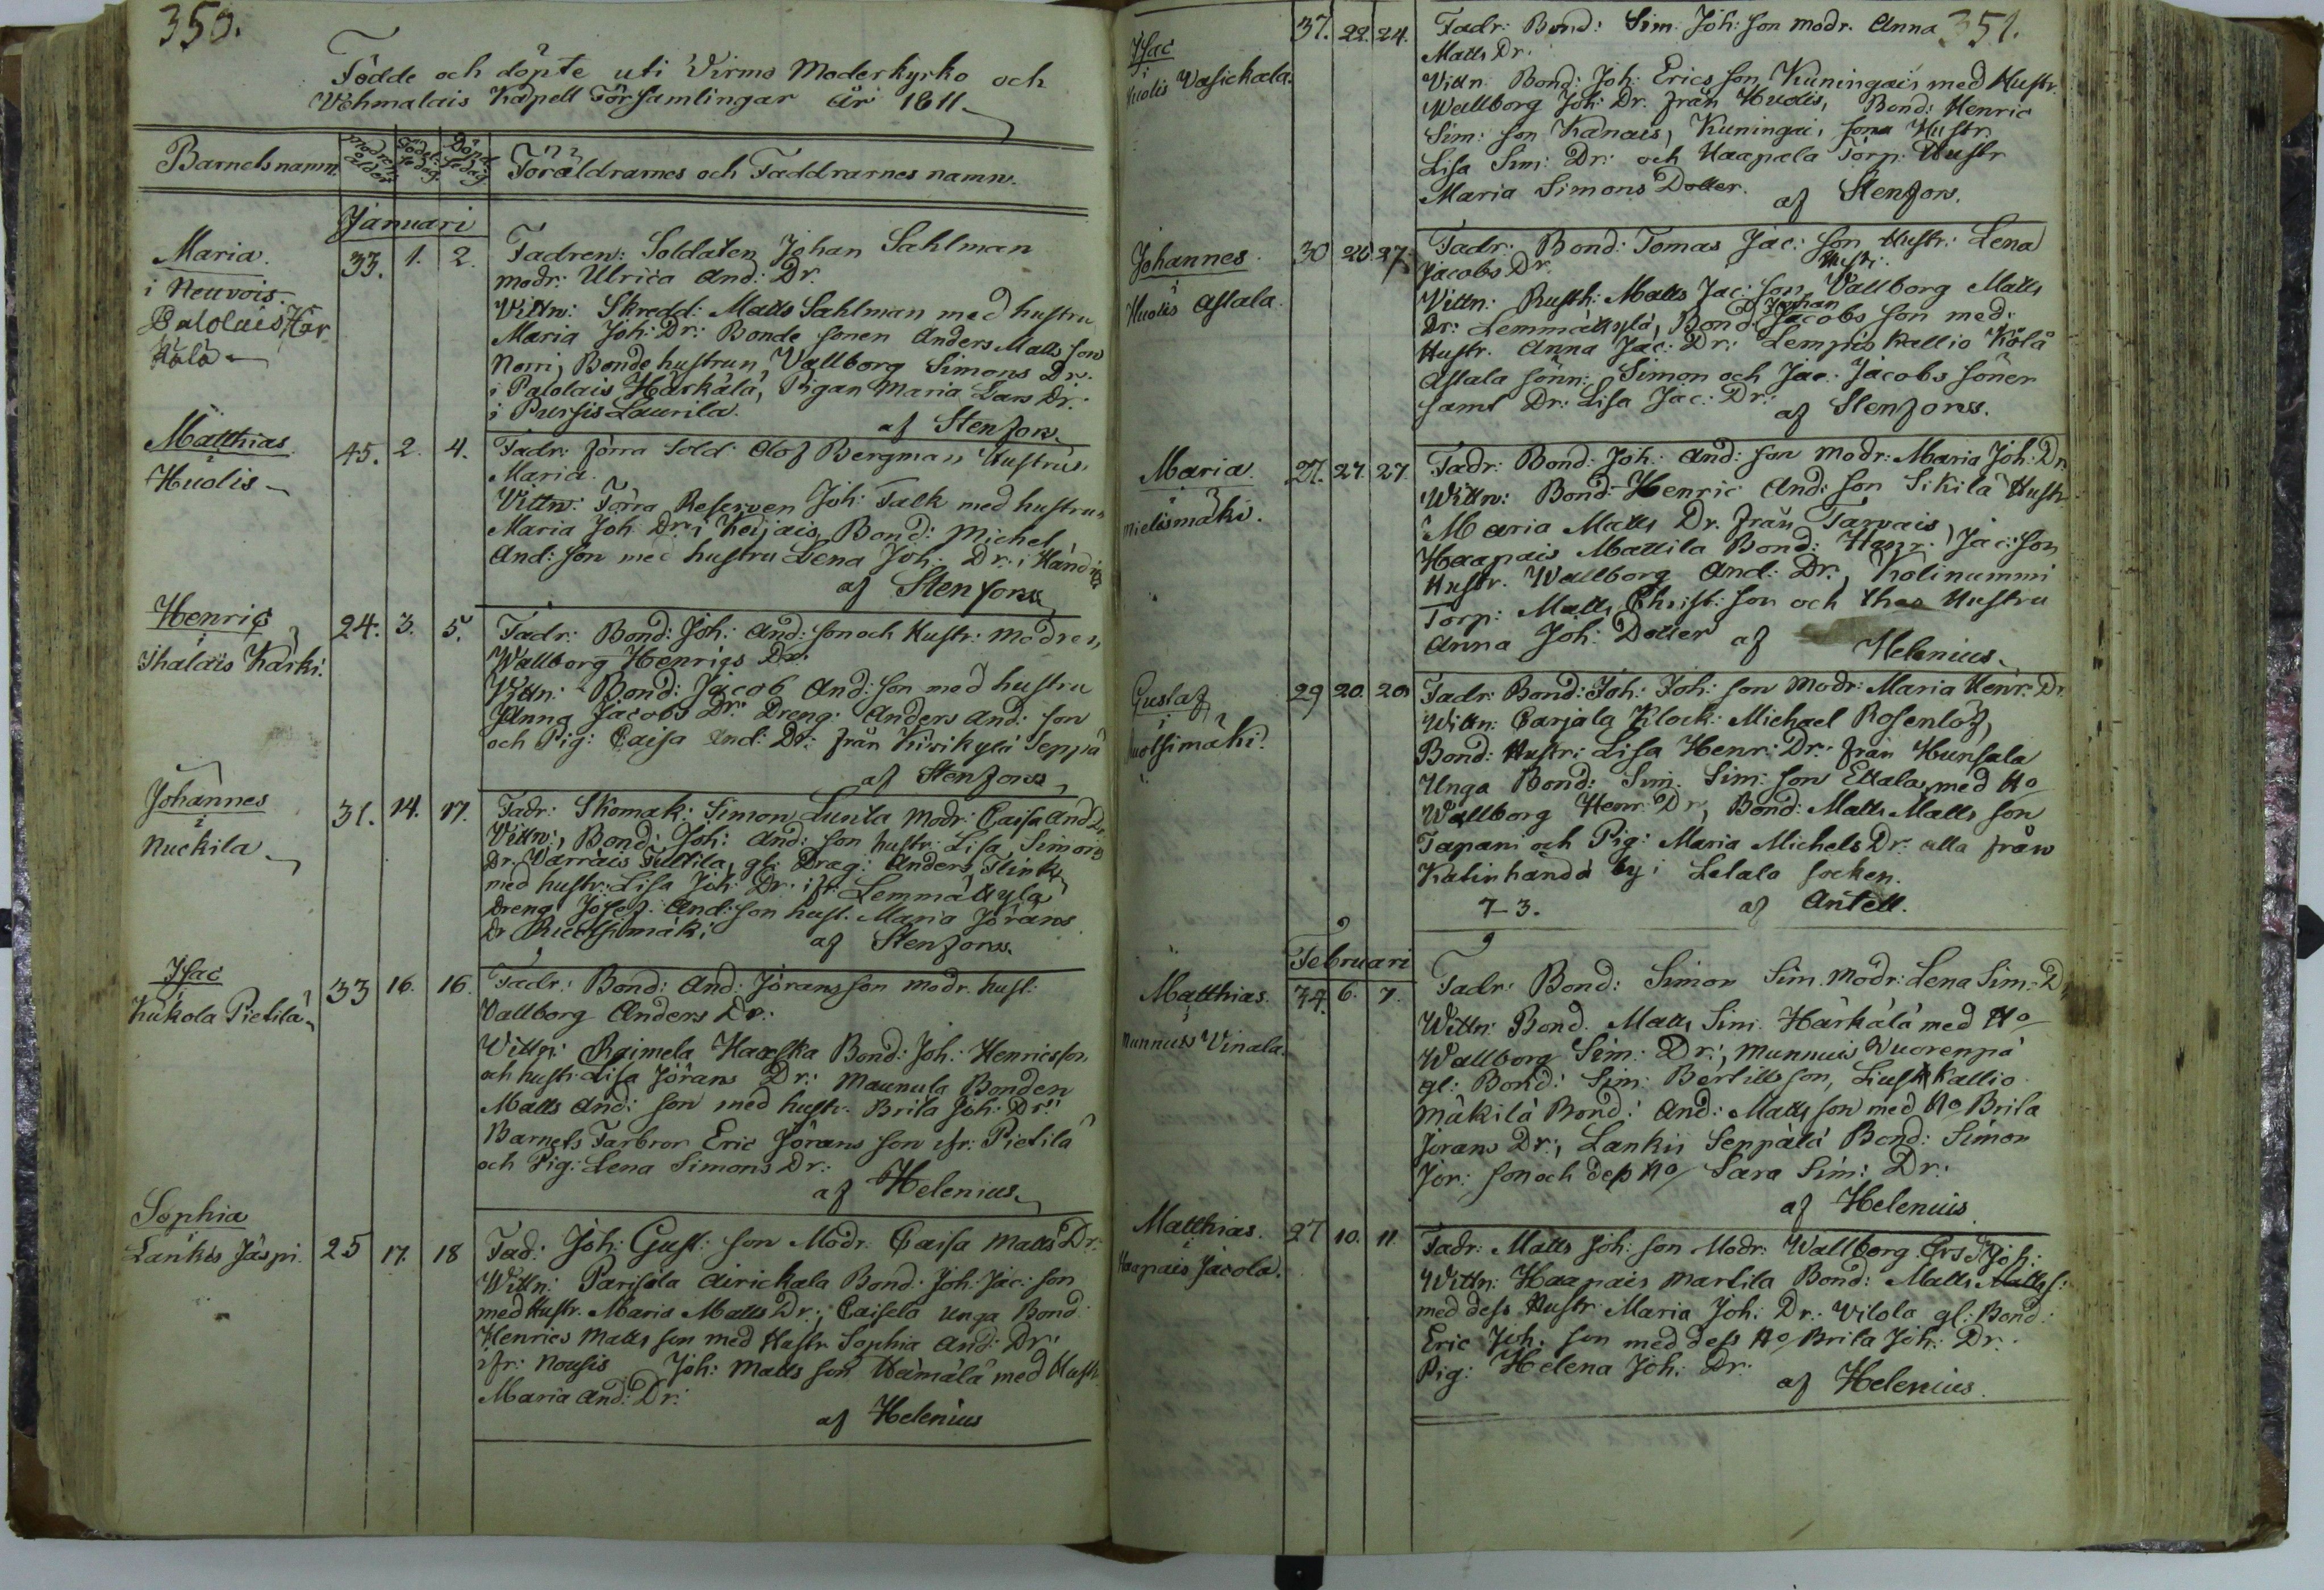 350.
Födde och döpte uti Wirmo Moderkyrko och
Wehmalais Kapell Församlingar År 1811
Barnets namn.
Modrens ålder
Födelsedag.
Döpelsedag
Föräldrarnes och Faddrarnes namn.
Januari
Maria.
i Neuvois.
Palolais Här
kälä
33. 1. 2.
Fadren: Soldaten Johan Sahlman
modr: Ulrica And: Dr.
Vittn: Skredd: Matts Sahlman med hustru
Maria Joh: Dr: Bonde sonen Anders Matts son
Norri, Bonde hustrun, Vallborg Simons Dr.
i Palolais Härkälä, Pigan Maria Lars Dr:
i Pursis Laurila.
af Stenfors.
Matthias
i
Hudis
45. 2. 4.
Fadr: förra Sold: Olof Bergman Hustrun
Maria.
Vittn: Förra Reserven Joh: Falk med hustrun
Maria Joh: Dr: i Keijais, Bond: Michel
And: son med hustru Lena Joh: Dr: i
af Stenfors
Henric
i
Ihalais Kärki.
24. 3. 5.
Fadr: Bond: Joh: And: son och Hustr: modren
Wallborg Henrics Dr:
Vittn: Bond: Jacob And: son med hustru
Anna Jacobs Dr: Dreng: Anders And: son
och Pig: Caisa And: Dr: från Kirikylä Seppä
af Stenfors
Johannes
i
Nuckila
31. 14. 17.
Fadr: Skomak: Simon Lunta Modr: Caisa And Dr:
Vittn: Bond: Joh: And: son hustr: Lisa Simons
Dr. Warrais Tultila, gl: Drag: Anders Flink
med hustr: Lisa Joh: Dr: ifr: Lemmättylä
Dreng Josef And: son hust. Maria Jörans
Dr
af Stenfors.
Isac
i
Kukola Pietilä
33 16. 16.
Fadr: Bond: And: Jörans son modr. hust:
Vallborg Anders Dr:
Vittn: Raimela Haalka Bond: Joh: Henrics son
och hustr: Lisa Jörans Dr: Maunula Bonden
Matts And: son med hustr: Brita Joh: Dr:
Barnets Farbror Eric Jörans son ifr: Pietilä
och Pig: Lena Simons Dr:
af Helenius
Sophia
i
Lankis Jäspi.
25 17. 18
Fad: Joh: Gust: son Modr: Caisa Matts Dr:
Wittn: Parsila Airickala Bond: Joh: Jac: son
med Hustr. Maria Matts Dr:, Caisela unga Bond:
Henrics Matts son med Hustr Sophia And: Dr:
ifr: Nousis Joh: Matts son Heimälä med Hustr.
Maria And: Dr:
af Helenius
351.
Isac
i
Hudis Wasickala.
37. 22. 24.
Fadr: Bond: Sim: Joh: son modr. Anna
Matts Dr.
Vittn: Bond: Joh: Erics son, Kuningais med Hustr.
Wallborg Joh: Dr. från Hudis, Bond: Henric
Sim: son Kanais, Kuningai, Hustr.
Lisa Sim: Dr: och Haapala Torp: Hustr
Maria Simons Dotter.
af Stenfors.
Johannes
i
Hudis Astala
30 26 27.
Fadr: Bond: Tomas Jac: son Hustr: Lena
Jacobs Dr.
Hustr:
Vittn: Rusth: Matts Jac: son, Vallborg Matts
Johan
Dr: Lemmättylä, Bond: Jacobs son med:
Hustr. Anna Jac: Dr: Lempis kallio Kölä
Astala sönn: Simon och Jac: Jacobs söner
samt Dr: Lisa Jac: Dr:
af Stenfors.
Maria
i
Mielismäki.
27. 27 27.
Fadr: Bond: Joh: And: son modr: Maria Joh: Dr:
Wittn: Bond: Henric And: son Sikilä Hustr
Maria Matts Dr. från Tarvais,
Haapais Mattila Bond: Henr: Jac: son
Hustr. Wallborg And: Dr., Kolinummi
Torp: Matts Christ: son och thes Hustru
Anna Joh: Dotter af Helenius
Gustaf
i
29 20. 20.
Fadr: Bond: Joh: Joh: son Modr: Maria Henr: Dr
Wittn: Carjala Klock: Michael Rosenlöf,
Bond: Hustr: Lisa Henr: Dr: från Hunsala
Unga Bond: Sim: Sim: son Ettala, med Ho
Wallborg Henr: Dr, Bond: Matts Matts son
Tapani och Pig: Maria Michels Dr: alla från
Katinhändä by i Letala socken.
7–3. af Antell.
Februari
Matthias.
i
Munnuis Vinala.
34. 6. 7.
Fadr: Bond: Simon Sim. Modr: Lena Sim: Dr
Wittn: Bond. Matts Sim. Härkälä med Ho
Wallborg Sim: Dr:, Munnuis Vuorenpä
gl: Bond: Sim: Bertills son, Liuskkallio
Mäkilä Bond: And: Matts son med Ho Brita
Jörans Dr:, Lankis Seppälä Bond: Simon
Jör: son och dess Ho Sara Sim: Dr:
af Helenius
Matthias.
i
Haapais Jacola.
27 10. 11.
Fadr: Matts Joh: son Modr: Wallborg Joh:
Wittn: Haapais Martila Bond: Matts Matts s:
med dess Hustr Maria Joh: Dr: Vilola gl: Bond:
Eric Joh: son med dess Ho Brita Joh: Dr:
Pig: Helena Joh: Dr:
af Helenius.